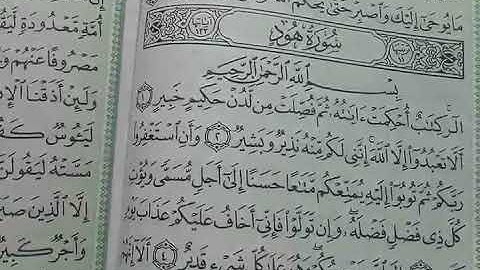 مَا يُوحَىٰٓ إِلَيۡكَ وَٱصۡبِرۡ حَتَّىٰ يَحۡكُمَ
سُورَةُ هُودٍ
بِسۡمِ ٱللَّهِ ٱلرَّحۡمَٰنِ ٱلرَّحِيمِ
الٓرۚ كِتَٰبٌ أُحۡكِمَتۡ ءَايَٰتُهُۥ ثُمَّ فُصِّلَتۡ مِن لَّدُنۡ حَكِيمٍ خَبِيرٍ ١
أَلَّا تَعۡبُدُوٓاْ إِلَّا ٱللَّهَۚ إِنَّنِي لَكُم مِّنۡهُ نَذِيرٞ وَبَشِيرٞ ٢ وَأَنِ ٱسۡتَغۡفِرُواْ
رَبَّكُمۡ ثُمَّ تُوبُوٓاْ إِلَيۡهِ يُمَتِّعۡكُم مَّتَٰعًا حَسَنًا إِلَىٰٓ أَجَلٖ مُّسَمّٗى وَيُؤۡتِ
كُلَّ ذِي فَضۡلٖ فَضۡلَهُۥۖ وَإِن تَوَلَّوۡاْ فَإِنِّيٓ أَخَافُ عَلَيۡكُمۡ عَذَابَ يَوۡمٖ
وَهُوَ عَلَىٰ كُلِّ شَيۡءٖ قَدِيرٌ ٤ أَلَآ
أُمَّةٖ مَّعۡدُودَةٖ
مَصۡرُوفًا عَنۡهُمۡ
وَلَئِنۡ أَذَقۡنَا
لَيَـُٔوسٞ
مَسَّتۡهُ لَيَقُولَنَّ
إِلَّا ٱلَّذِينَ
وَأَجۡرٞ كَبِيرٞ